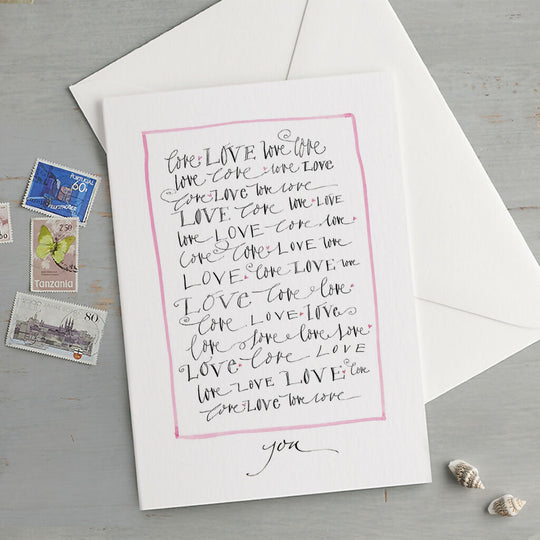 love LOVE love love
love love love LOVE
love LOVE love love
LOVE love love LOVE
love LOVE love love
love love LOVE love
LOVE love LOVE love
LOVE love love
love LOVE LOVE
love love love love
LOVE love LOVE
love LOVE LOVE love
love LOVE love love
you
PORTUGAL
60
2.50
Tanzania
80